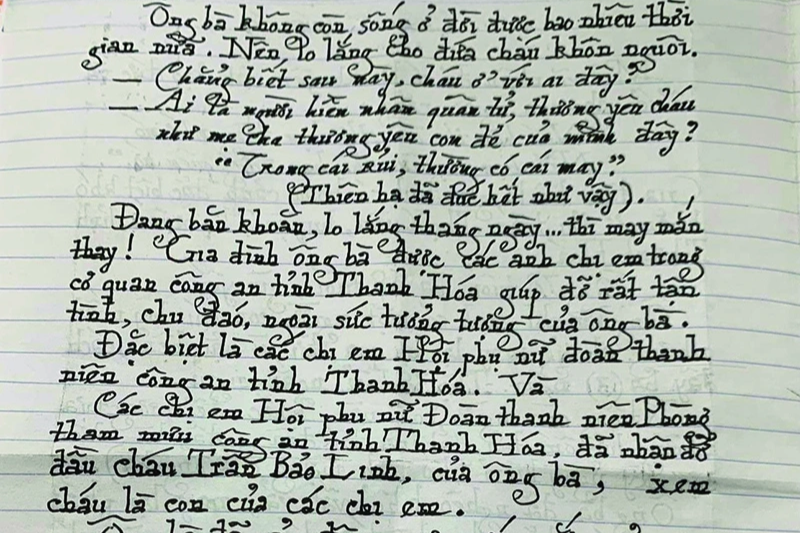 Ông bà không còn sống ở đời được bao nhiêu thời
gian nữa. Nên lo lắng cho đứa cháu khôn nguôi.
— Chẳng biết sau này, cháu ở với ai đây?
— Ai là người hiền nhân quân tử, thương yêu cháu
như mẹ cha thương yêu con đẻ của mình đây?
"Trong cái rủi, thường có cái may."
(Thiên hạ đã đúc hết như vậy).
Đang băn khoăn, lo lắng tháng ngày... thì may mắn
thay! Gia đình ông bà được các anh chị em trong
cơ quan công an tỉnh Thanh Hóa giúp đỡ rất tận
tình, chu đáo, ngoài sức tưởng tượng của ông bà.
Đặc biệt là các chị em Hội phụ nữ đoàn thanh
niên công an tỉnh Thanh Hóa. Và
Các chị em Hội phụ nữ Đoàn thanh niên Phòng
tham mưu công an tỉnh Thanh Hóa, đã nhận đỡ
đầu cháu Trần Bảo Linh, của ông bà, xem
cháu là con của các chị em.